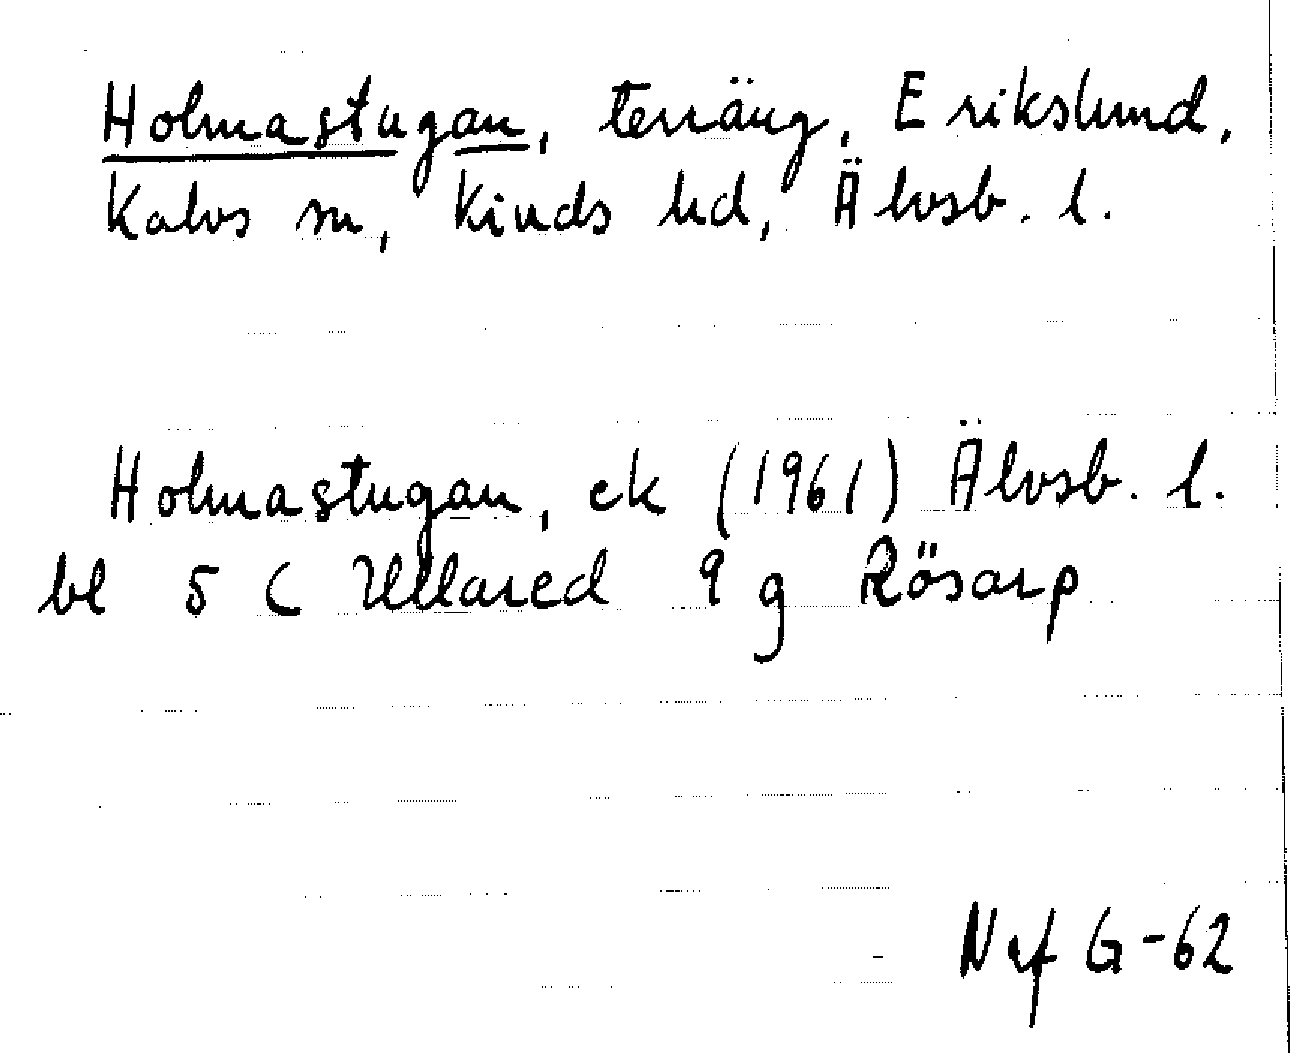 Holmastugan, terräng, Erikslund,
Kalvs sn, Kinds hd, Älvsb. l.
Holmastugan, ek (1961) Älvsb. l.
bl 5 C Ullared 9 g Rösarp
Nvf G-62